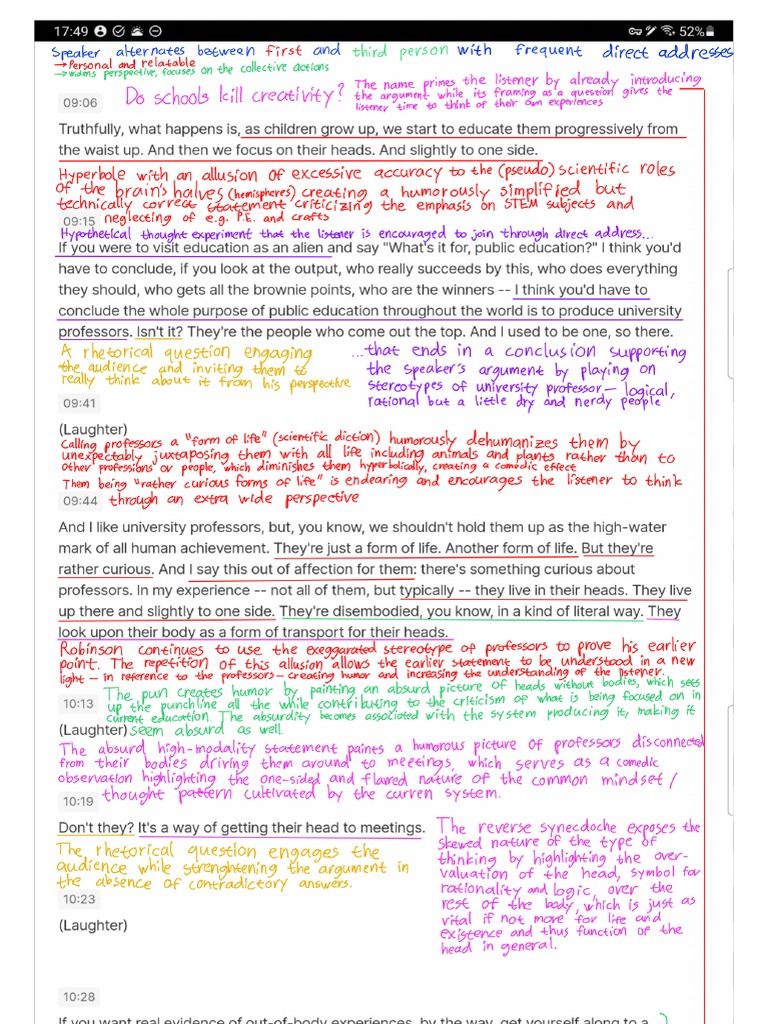 17:49 52%
Speaker alternates between first and third person with frequent direct addresses
→Personal and relatable
→widens perspective, focuses on the collective actions
Do schools kill creativity?
The name primes the listener by already introducing
the argument while its framing as a question gives the
listener time to think of their own experiences
09:06
Truthfully, what happens is, as children grow up, we start to educate them progressively from
the waist up. And then we focus on their heads. And slightly to one side.
Hyperbole with an allusion of excessive accuracy to the (pseudo) scientific roles
of the brain's halves (hemispheres) creating a humorously simplified but
technically correct statement criticizing the emphasis on STEM subjects and
neglecting of e.g. P.E. and crafts
09:15
Hypothetical thought experiment that the listener is encouraged to join through direct address...
If you were to visit education as an alien and say "What's it for, public education?" I think you'd
have to conclude, if you look at the output, who really succeeds by this, who does everything
they should, who gets all the brownie points, who are the winners -- I think you'd have to
conclude the whole purpose of public education throughout the world is to produce university
professors. Isn't it? They're the people who come out the top. And I used to be one, so there.
A rhetorical question engaging
the audience and inviting them to
really think about it from his perspective
...that ends in a conclusion supporting
the speaker's argument by playing on
stereotypes of university professor — logical,
rational but a little dry and nerdy people
09:41
(Laughter)
Calling professors a "form of life" (scientific diction) humorously dehumanizes them by
unexpectably juxtaposing them with all life including animals and plants rather than to
other professions or people, which diminishes them hyperbolically, creating a comedic effect
Them being "rather curious forms of life" is endearing and encourages the listener to think
through an extra wide perspective
09:44
And I like university professors, but, you know, we shouldn't hold them up as the high-water
mark of all human achievement. They're just a form of life. Another form of life. But they're
rather curious. And I say this out of affection for them: there's something curious about
professors. In my experience -- not all of them, but typically -- they live in their heads. They live
up there and slightly to one side. They're disembodied, you know, in a kind of literal way. They
look upon their body as a form of transport for their heads.
Robinson continues to use the exeggarated stereotype of professors to prove his earlier
point. The repetition of this allusion allows the earlier statement to be understood in a new
light — in reference to the professors — creating humor and increasing the understanding of the listener.
The pun creates humor by painting an absurd picture of heads without bodies, which sets
up the punchline all the while contributing to the criticism of what is being focused on in
current education. The absurdity becomes associated with the system producing it, making it
seem absurd as well.
10:13
(Laughter)
The absurd high-modality statement paints a humorous picture of professors disconnected
from their bodies driving them around to meetings, which serves as a comedic
observation highlighting the one-sided and flawed nature of the common mindset/
thought pattern cultivated by the curren system.
10:19
Don't they? It's a way of getting their head to meetings.
The rhetorical question engages the
audience while strenghtening the argument in
the absence of contradictory answers.
The reverse synecdoche exposes the
skewed nature of the type of
thinking by highlighting the over-
valuation of the head, symbol for
rationality and logic, over the
rest of the body, which is just as
vital if not more for life and
existence and thus function of the
head in general.
10:23
(Laughter)
10:28
If you want real evidence of out-of-body experiences, by the way, get yourself along to a